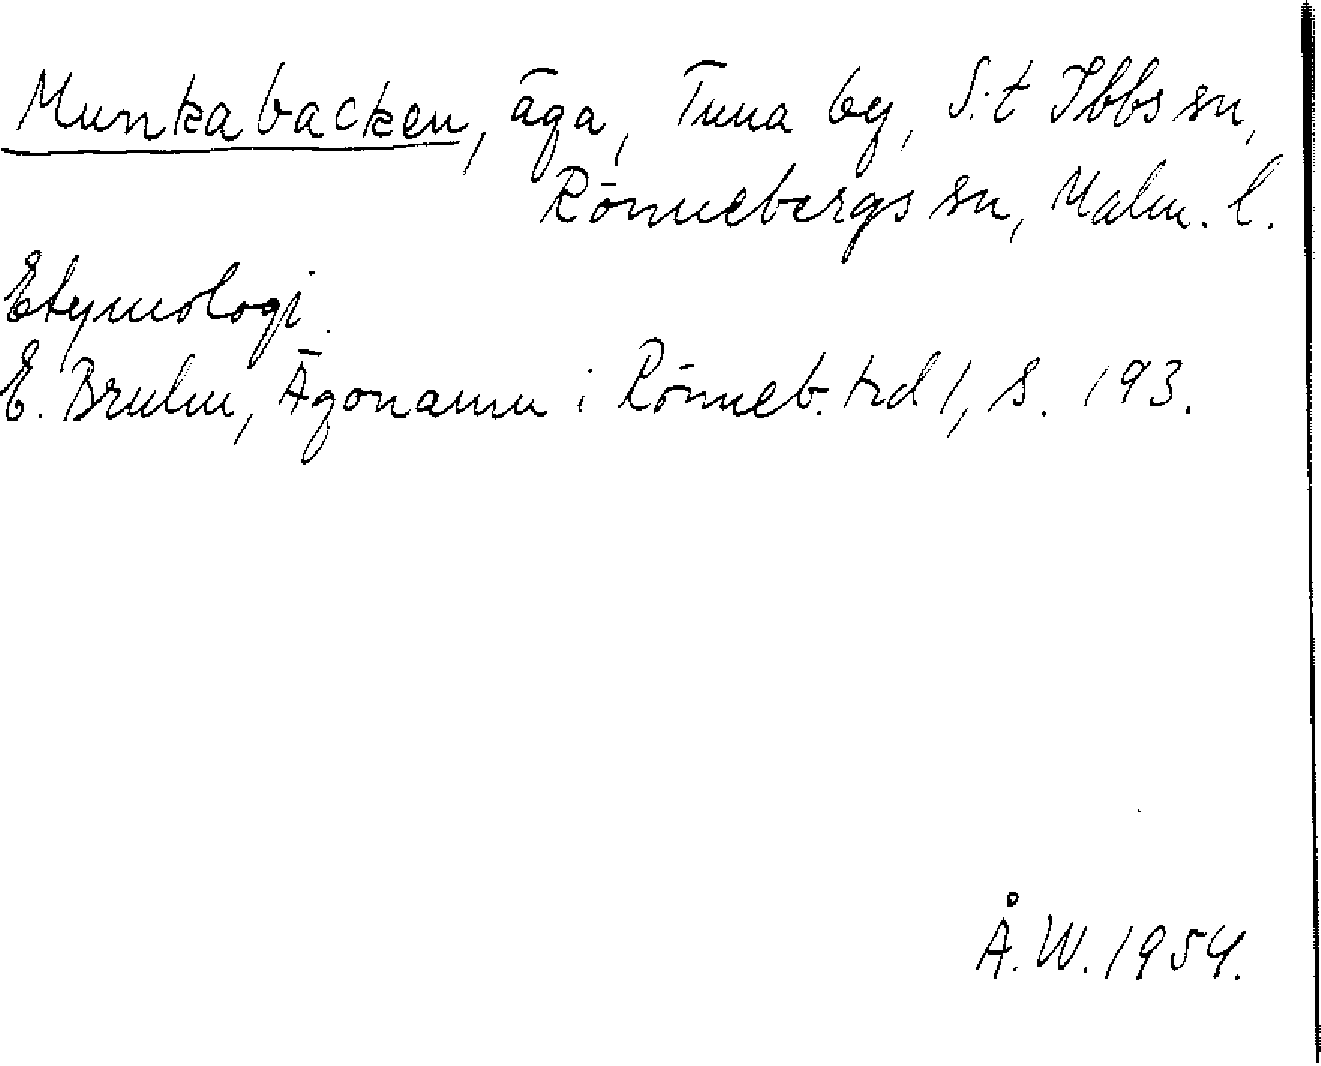 Munkabacken, äga, Tuna by, S:t Ibbs sn,
Rönnebergs sn, Malm. l.
Etymologi.
E. Bruhn, Ägonamn i Rönneb. hd 1, s. 193.
Å. W. 1954.